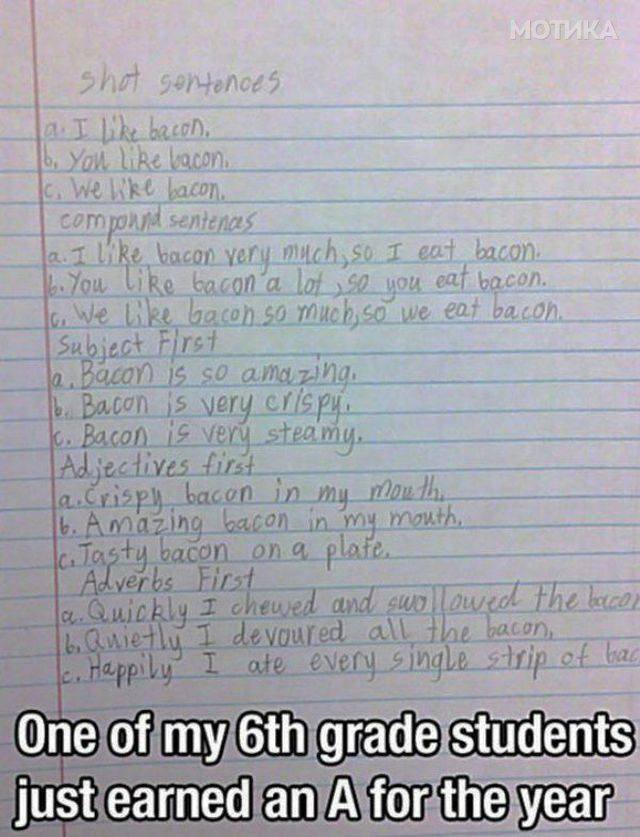 МОТИКА
shot sentences
a. I like bacon.
b. You like bacon.
c. We like bacon.
compound sentences
a. I like bacon very much, so I eat bacon.
b. You like bacon a lot, so you eat bacon.
c. We like bacon so much, so we eat bacon.
Subject First
a. Bacon is so amazing.
b. Bacon is very crispy.
c. Bacon is very steamy.
Adjectives first
a. Crispy bacon in my mouth.
b. Amazing bacon in my mouth.
c. Tasty bacon on a plate.
Adverbs First
a. Quickly I chewed and swollowed the bacon
b. Quietly I devoured all the bacon.
c. Happily I ate every single strip of bac
One of my 6th grade students
just earned an A for the year